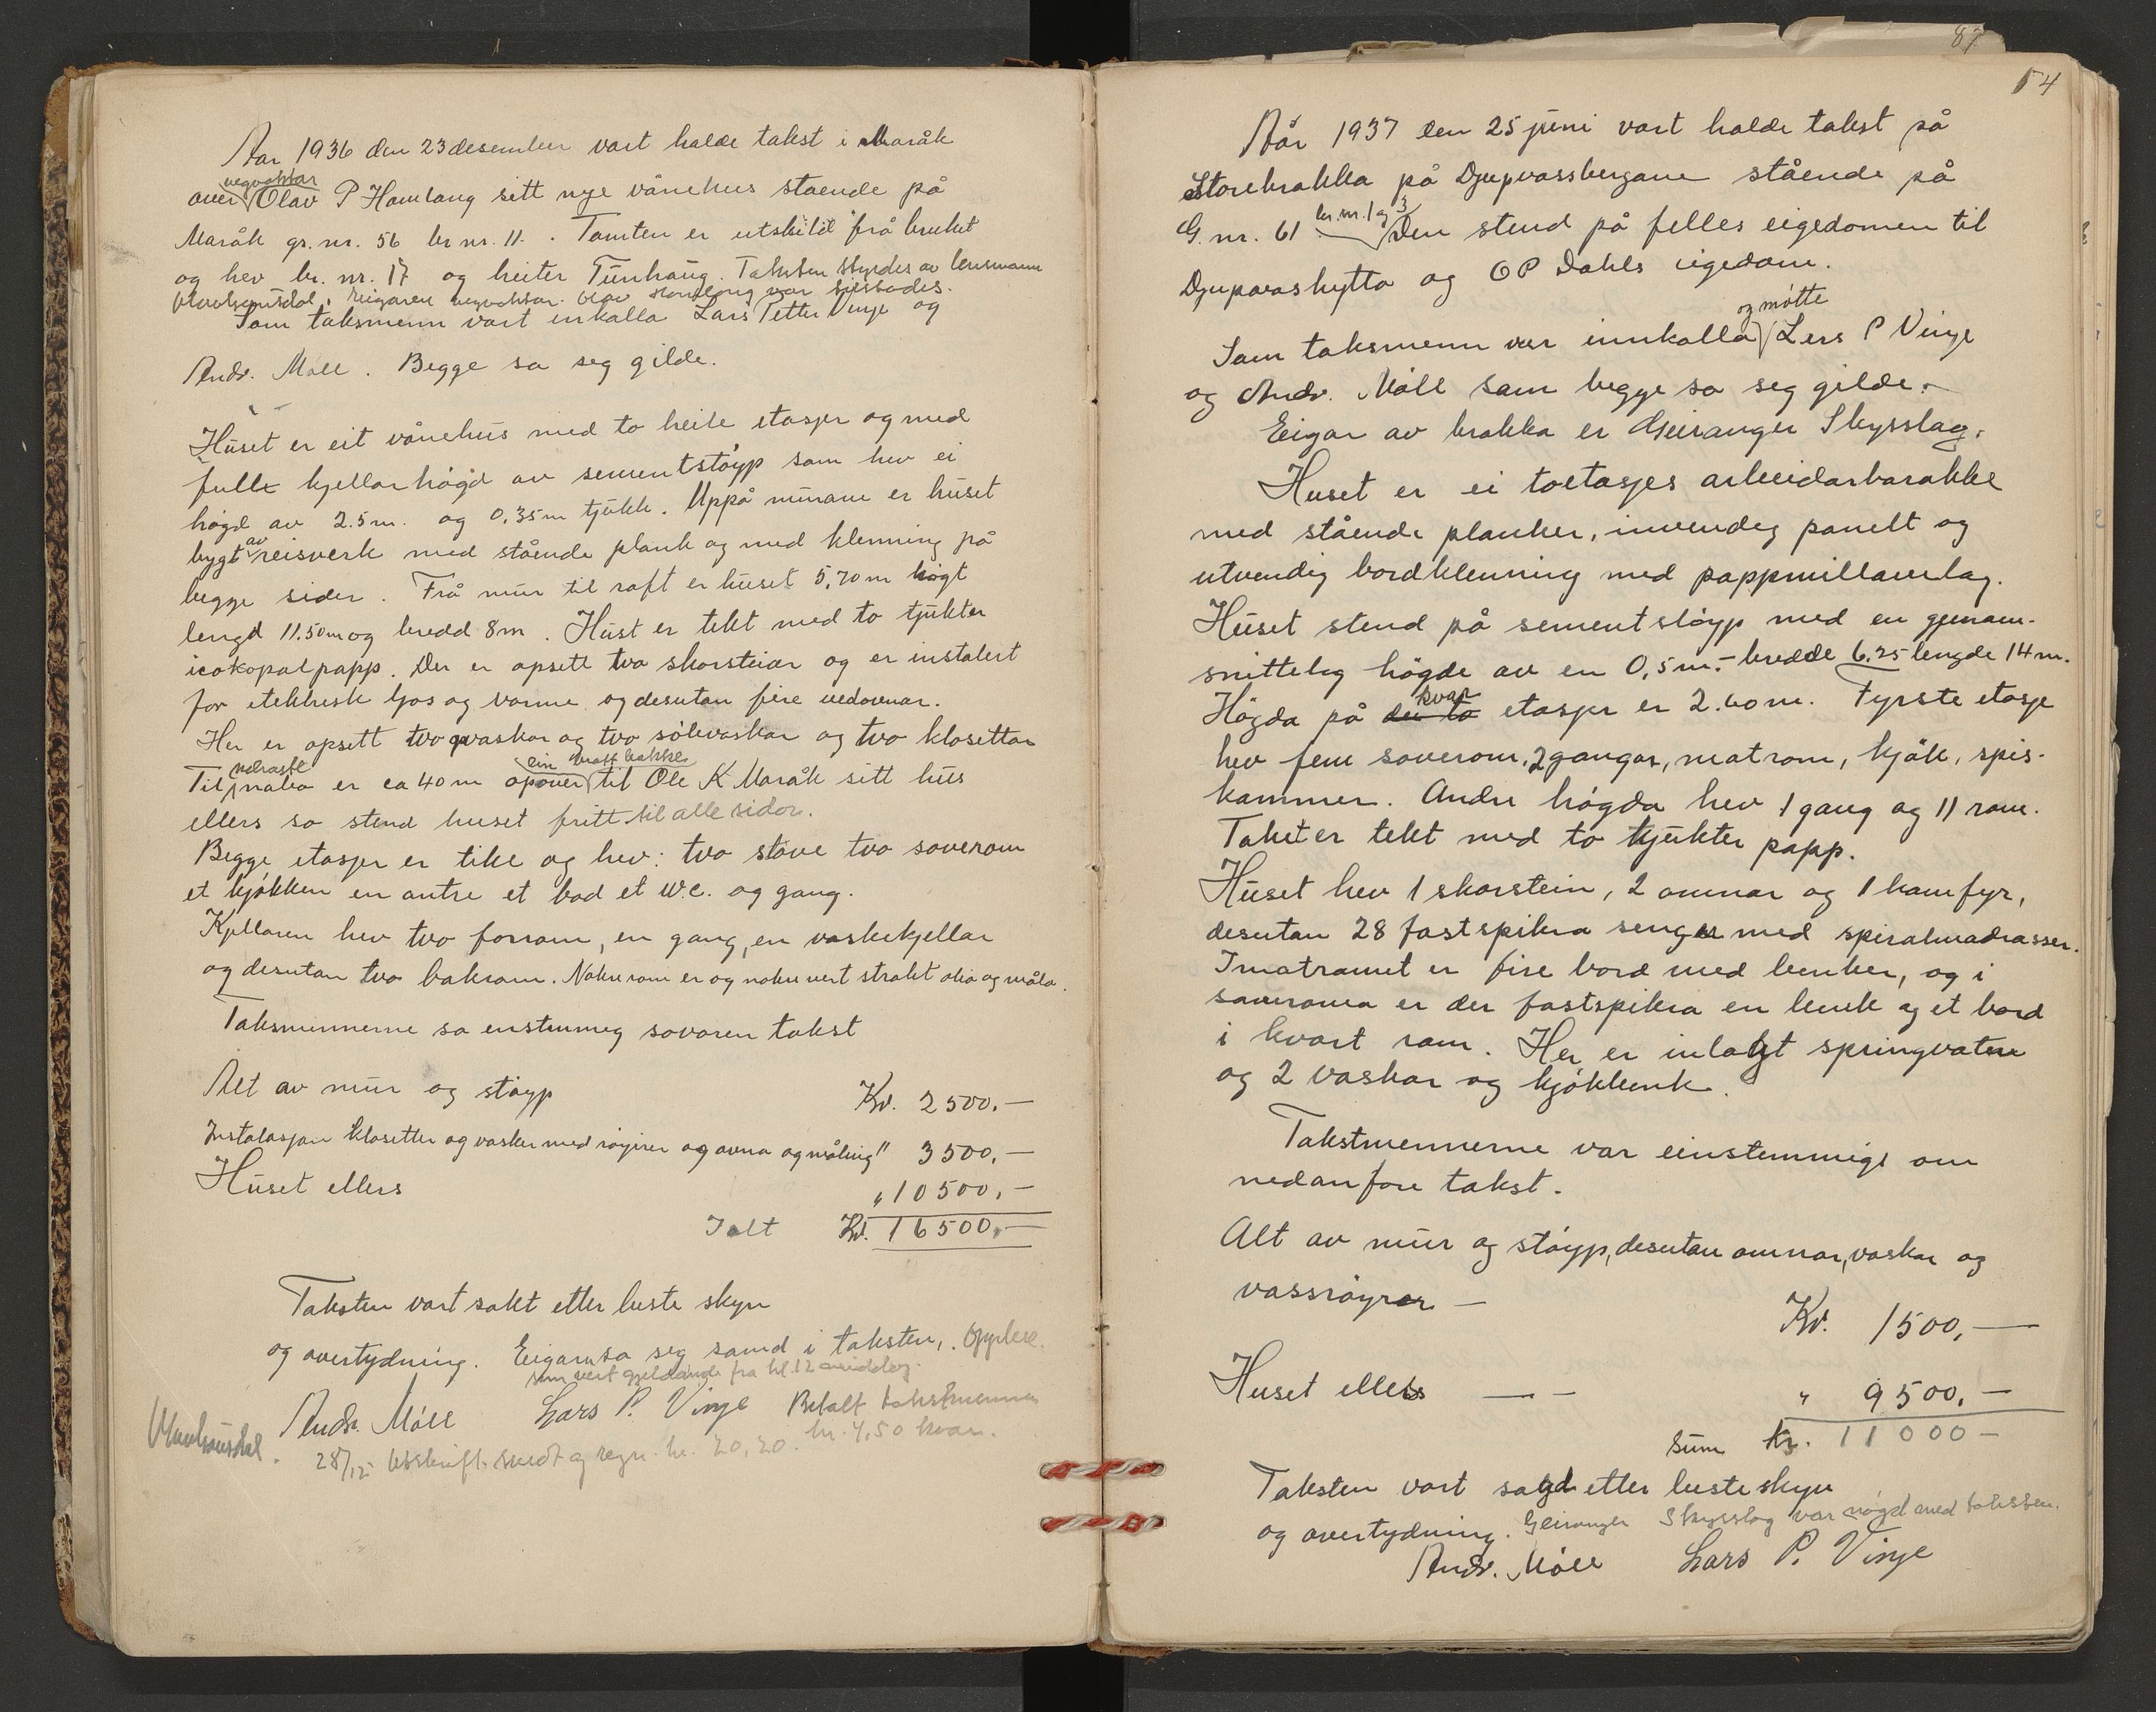 Aar 1936 den 23 desember vart halde takst i Maråk
vegvaktar
over Olav P Homlong sitt nye vånehus staende på
Maråk gr. nr. 56 br nr. 11. Tomten er utskild frå bruket
og hev br. nr. 17 og heiter Tunhaug. Taksten styrdes av lensmann
Eigaren vegvaktar Olav Homlong var tilstades.
Som taksmenn vart inkalla Lars Petter Vinje og
Andr. Møll. Begge sa seg gilde.
Huset er eit vånehus med to heile etasjer og med
full kjellarhøgd av sementstøyp som hev ei
høgd av 2.5 m. og 0,35 m tjukk. Uppå murane er huset
av
bygt reisverk med stående plank og med kledning på
begge sider. Frå mur til raft er huset 5,70 m høgt
lengd 11.50 m og bredd 8 m. Hust er tekt med to tjukter
icokopalpapp. Der er opsett two skorsteiar og er instalert
for elektrisk ljos og varme og desutan fire vedovnar.
Her er opsett tvo vaskar og tvo sölevaskar og tvo klosettar
næraste
ein bratt bakke
Til nabo er ca 40 m opover til Ole K Maråk sitt hus
ellers so stend huset fritt til alle sidor.
Begge etasjer er like og hev: tvo stove tvo soverom
et kjøkken en antre et bad et w.c. og gang.
Kjellaren hev tvo forrom, en gang, en vaskekjellar
og desutan tvo bakrom. Nokre rom er og nokre vert strakt olia og måla.
Taksmennerne sa enstemmeg sovoren takst
Alt av mur og støyp Kr. 2500.-
Instalasjon klosetter og vasker med røyrer og ovna og måling " 3500,-
Huset ellers " 10500,-
Ialt Kr. 16500,-
Taksten vart sakt etter beste skyn
og overtydning. Eigaren sa seg samd i taksten, Opplese.
som vert gjeldande fra kl. 12 middag.
Andr. Møll Lars P. Vinje Betalt takstmennene
kr. 4,50 kvar.
28/12 Utskrift sendt og regn. kr. 20,20.
87
54
Aår 1937 den 25 juni vart halde takst på
Storebrakka på Djupvassbergane stående på
br. nr. 1 og 3
G. nr. 61 Den stend på felles eigedomen til
Djupvashytta og O P Dahls eigedom.
og møtte
Som taksmenn var innkalla Lers P Vinje
og Andr. Møll som begge sa seg gilde.
Eigar av brakka er Geiranger Skysslag.
Huset er ei toetasjes arbeidarbarakke
med stående planker, invendeg panelt og
utvendig bordkledning med pappmillaverlag.
Huset stend på sementstøyp med en gjenom-
snitteleg högde av en 0,5 m. - bredde 6.25 lengde 14 m.
kvar
Högda på dei to etasjer er 2.60 m. Fyrste etasje
hev fem soverom, 2 gangar, matrom, kjøk, spis-
kammer. Andre høgda hev 1 gang og 11 rom.
Taket er tekt med to tjukter papp.
Huset hev 1 skorstein, 2 omnar og 1 kamfyr,
desutan 28 fastspikra senger med spiralmadrasser.
I matromet er fire bord med benker, og i
soveroma er der fastspikra en benk og et bord
i kvart rom. Her er inlagt springvatn
og 2 vaskar og kjøkbenk.
Takstmennerne var einstemmige om
nedanfore takst.
Alt av mur og støyp, desutan omnar, vaskar og
vassrøyrer - Kr. 1500,-
Huset ellers - - " 9500,-
Sum Kr. 11000-
Taksten vart sagd etter beste skyn
og overtydning. Geiranger Skysslag var nøgd med taksten.
Andr. Møll Lars P. Vinje